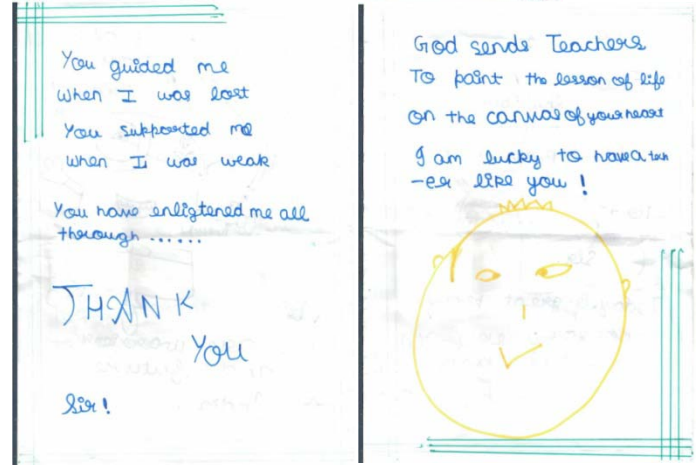 You guided me
when I was lost
You supported me
when I was weak
You have enligtened me all
through ......
THANK
You
Sir!
God sends Teachers
To paint the lesson of life
on the canvas of your heart
I am lucky to have a teach
-er like you !